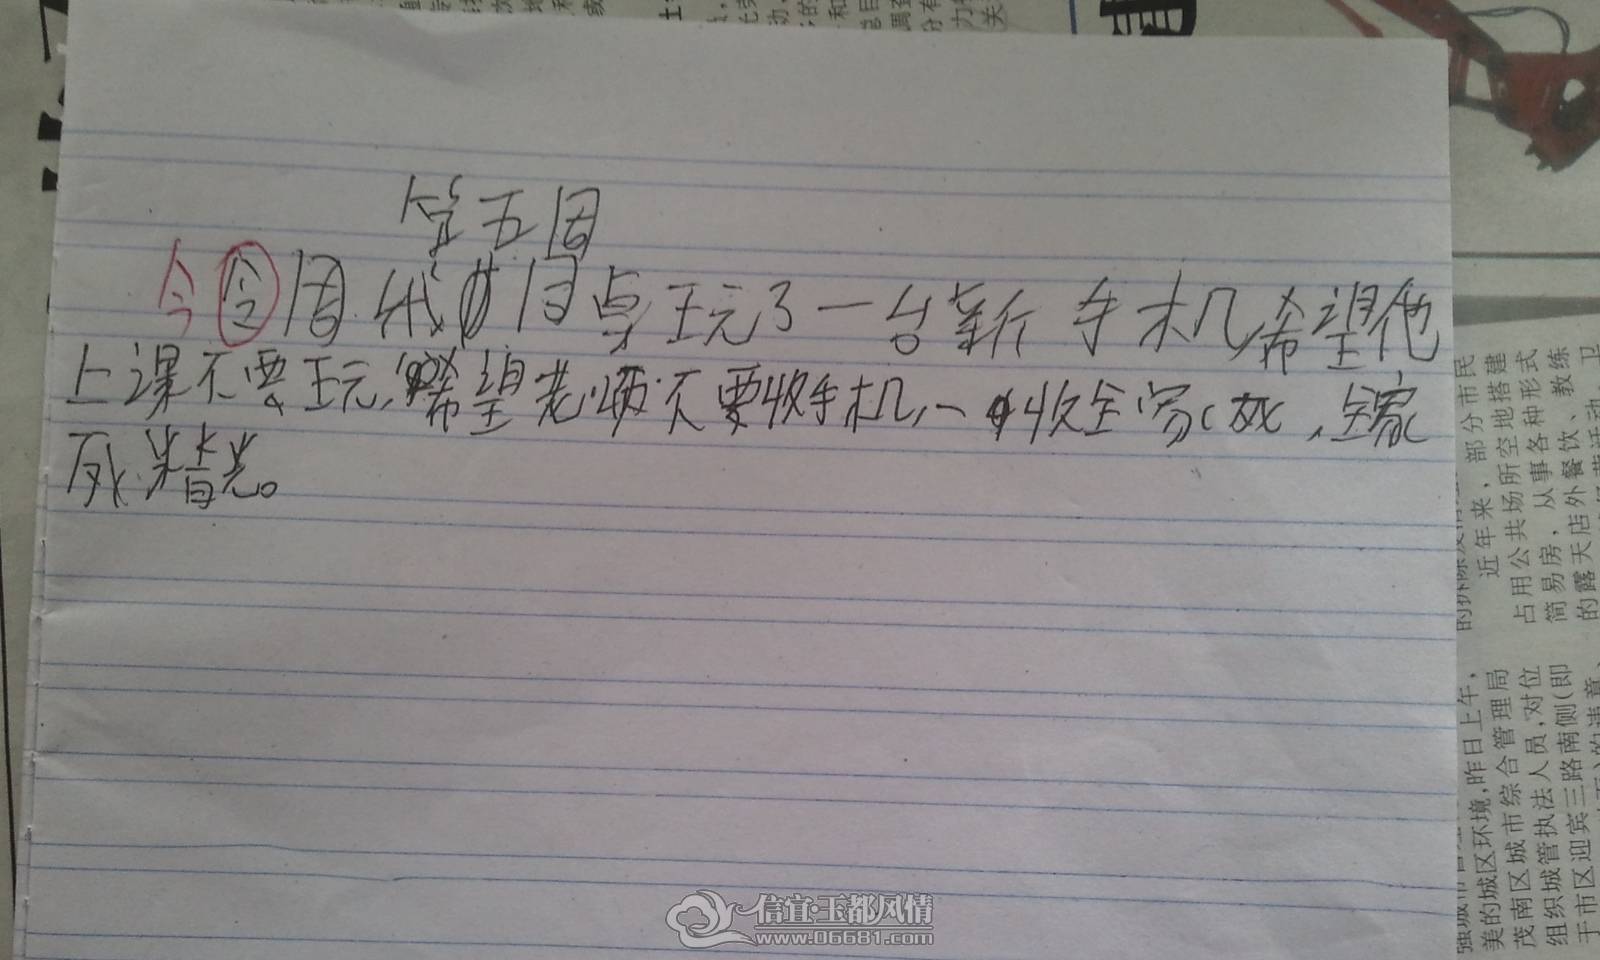 第五周
今今周我同桌玩了一台新手机希望他
上课不要玩,希望老师不要收手机,一收全家死,全家
死精光。
近年来,部分市民
占用公共场所空地搭建
简易房,从事各种形式
的露天店外餐饮、教练
美的城区环境,昨日上午,
茂南区城市综合管理局
组织城管执法人员,对位
于市区迎宾三路南侧(即
信宜·玉都风情
www.06681.com